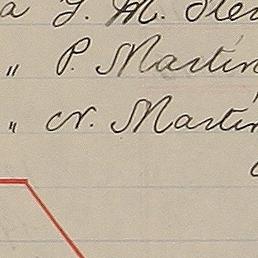 a G. M. Ste
" P. Martin
" W. Martin